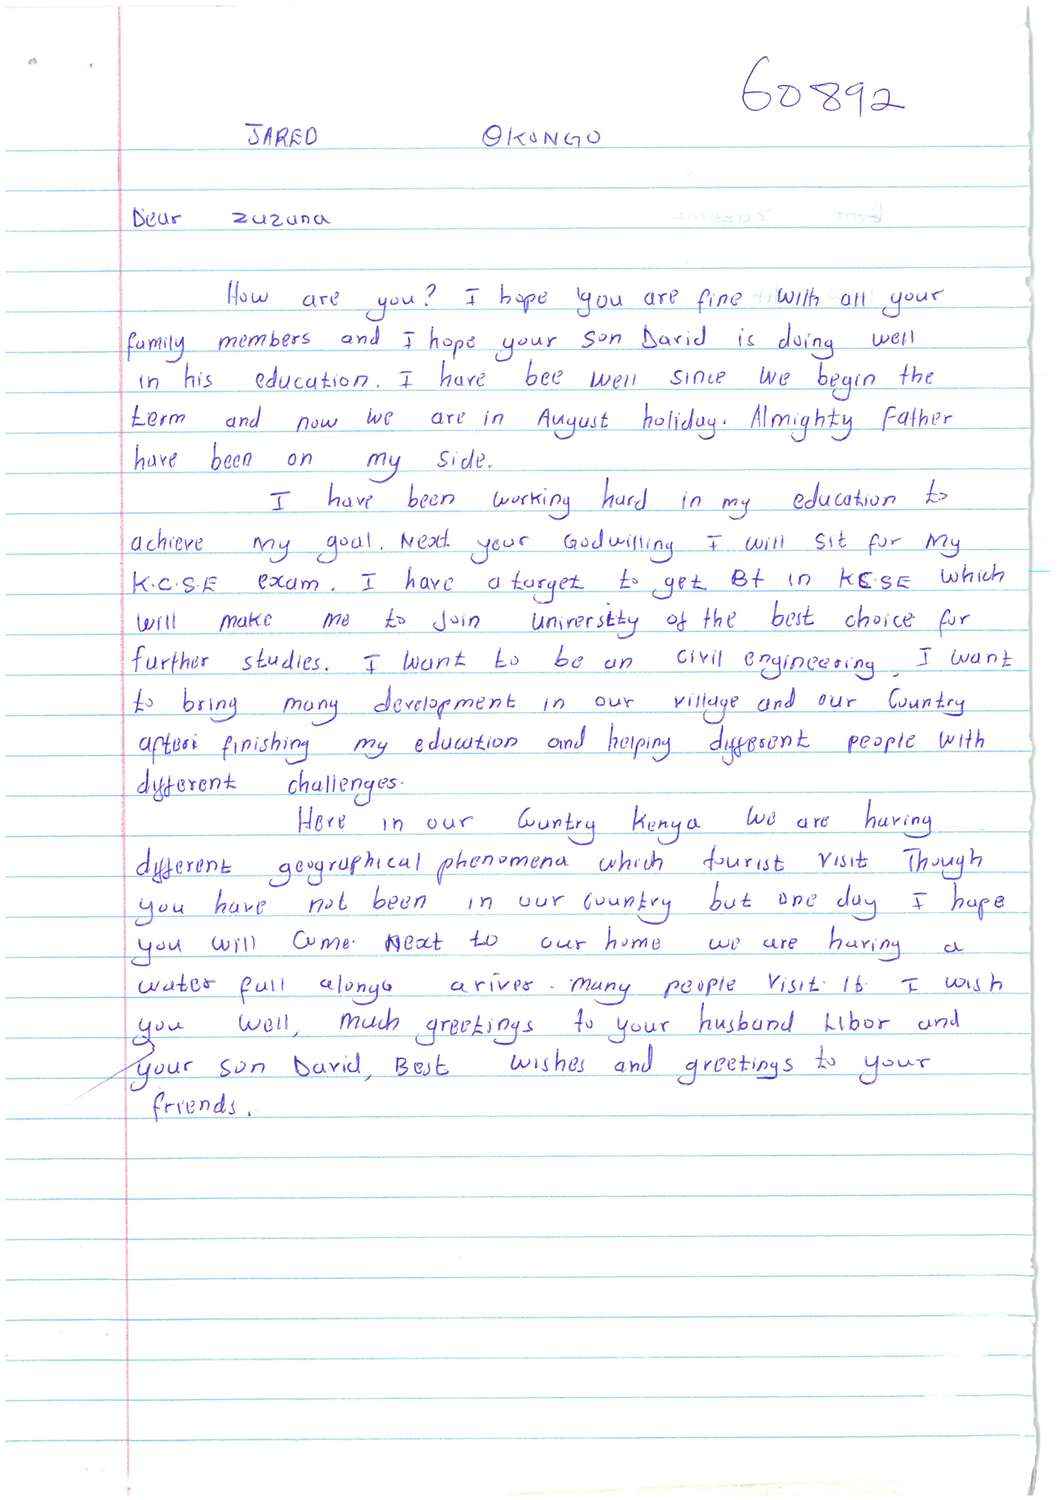 60892
JARED OKONGO
Dear zuzuna
How are you? I hope you are fine with all your
family members and I hope your son David is doing well
in his education. I have bee well since we begin the
term and now we are in August holiday. Almighty Father
have been on my side.
I have been working hard in my education to
achieve my goal. Next year Godwilling I will sit for my
K.C.S.E exam. I have a target to get B+ in KCSE which
will make me to join university of the best choice for
further studies. I want to be an civil engineering, I want
to bring many development in our village and our Country
after finishing my education and helping different people with
different challenges.
Here in our Country Kenya we are having
different geographical phenomena which tourist visit Though
you have not been in our country but one day I hope
you will come. Next to our home we are having a
water fall alonga a river. Many people visit it. I wish
you well, Much greetings to your husband Libor and
your son David, Best wishes and greetings to your
friends.